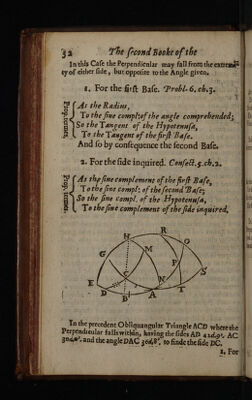 52 The second Booke of the
In this Case the Perpendicular may fall from the extremi-
ty of either side, but opposite to the Angle given.
1. For the first Base. Probl. 6. ch. 3.
Proportiones.
As the Radius,
To the sine compl: of the angle comprehended;
So the Tangent of the Hypotenusa,
To the Tangent of the first Base.
And so by consequence the second Base.
2. For the side inquired. Consect. 5. ch. 2.
As the sine complement of the first Base,
To the sine compl: of the second Base;
So the sine compl. of the Hypotenusa,
To the sine complement of the side inquired.
H R
O
G M
P
C S
E N
D B A T
In the precedent Obliquangular Triangle ACD where the
Perpendicular falls within, having the sides AD
and the angle DAC to finde the side DC.
1. For